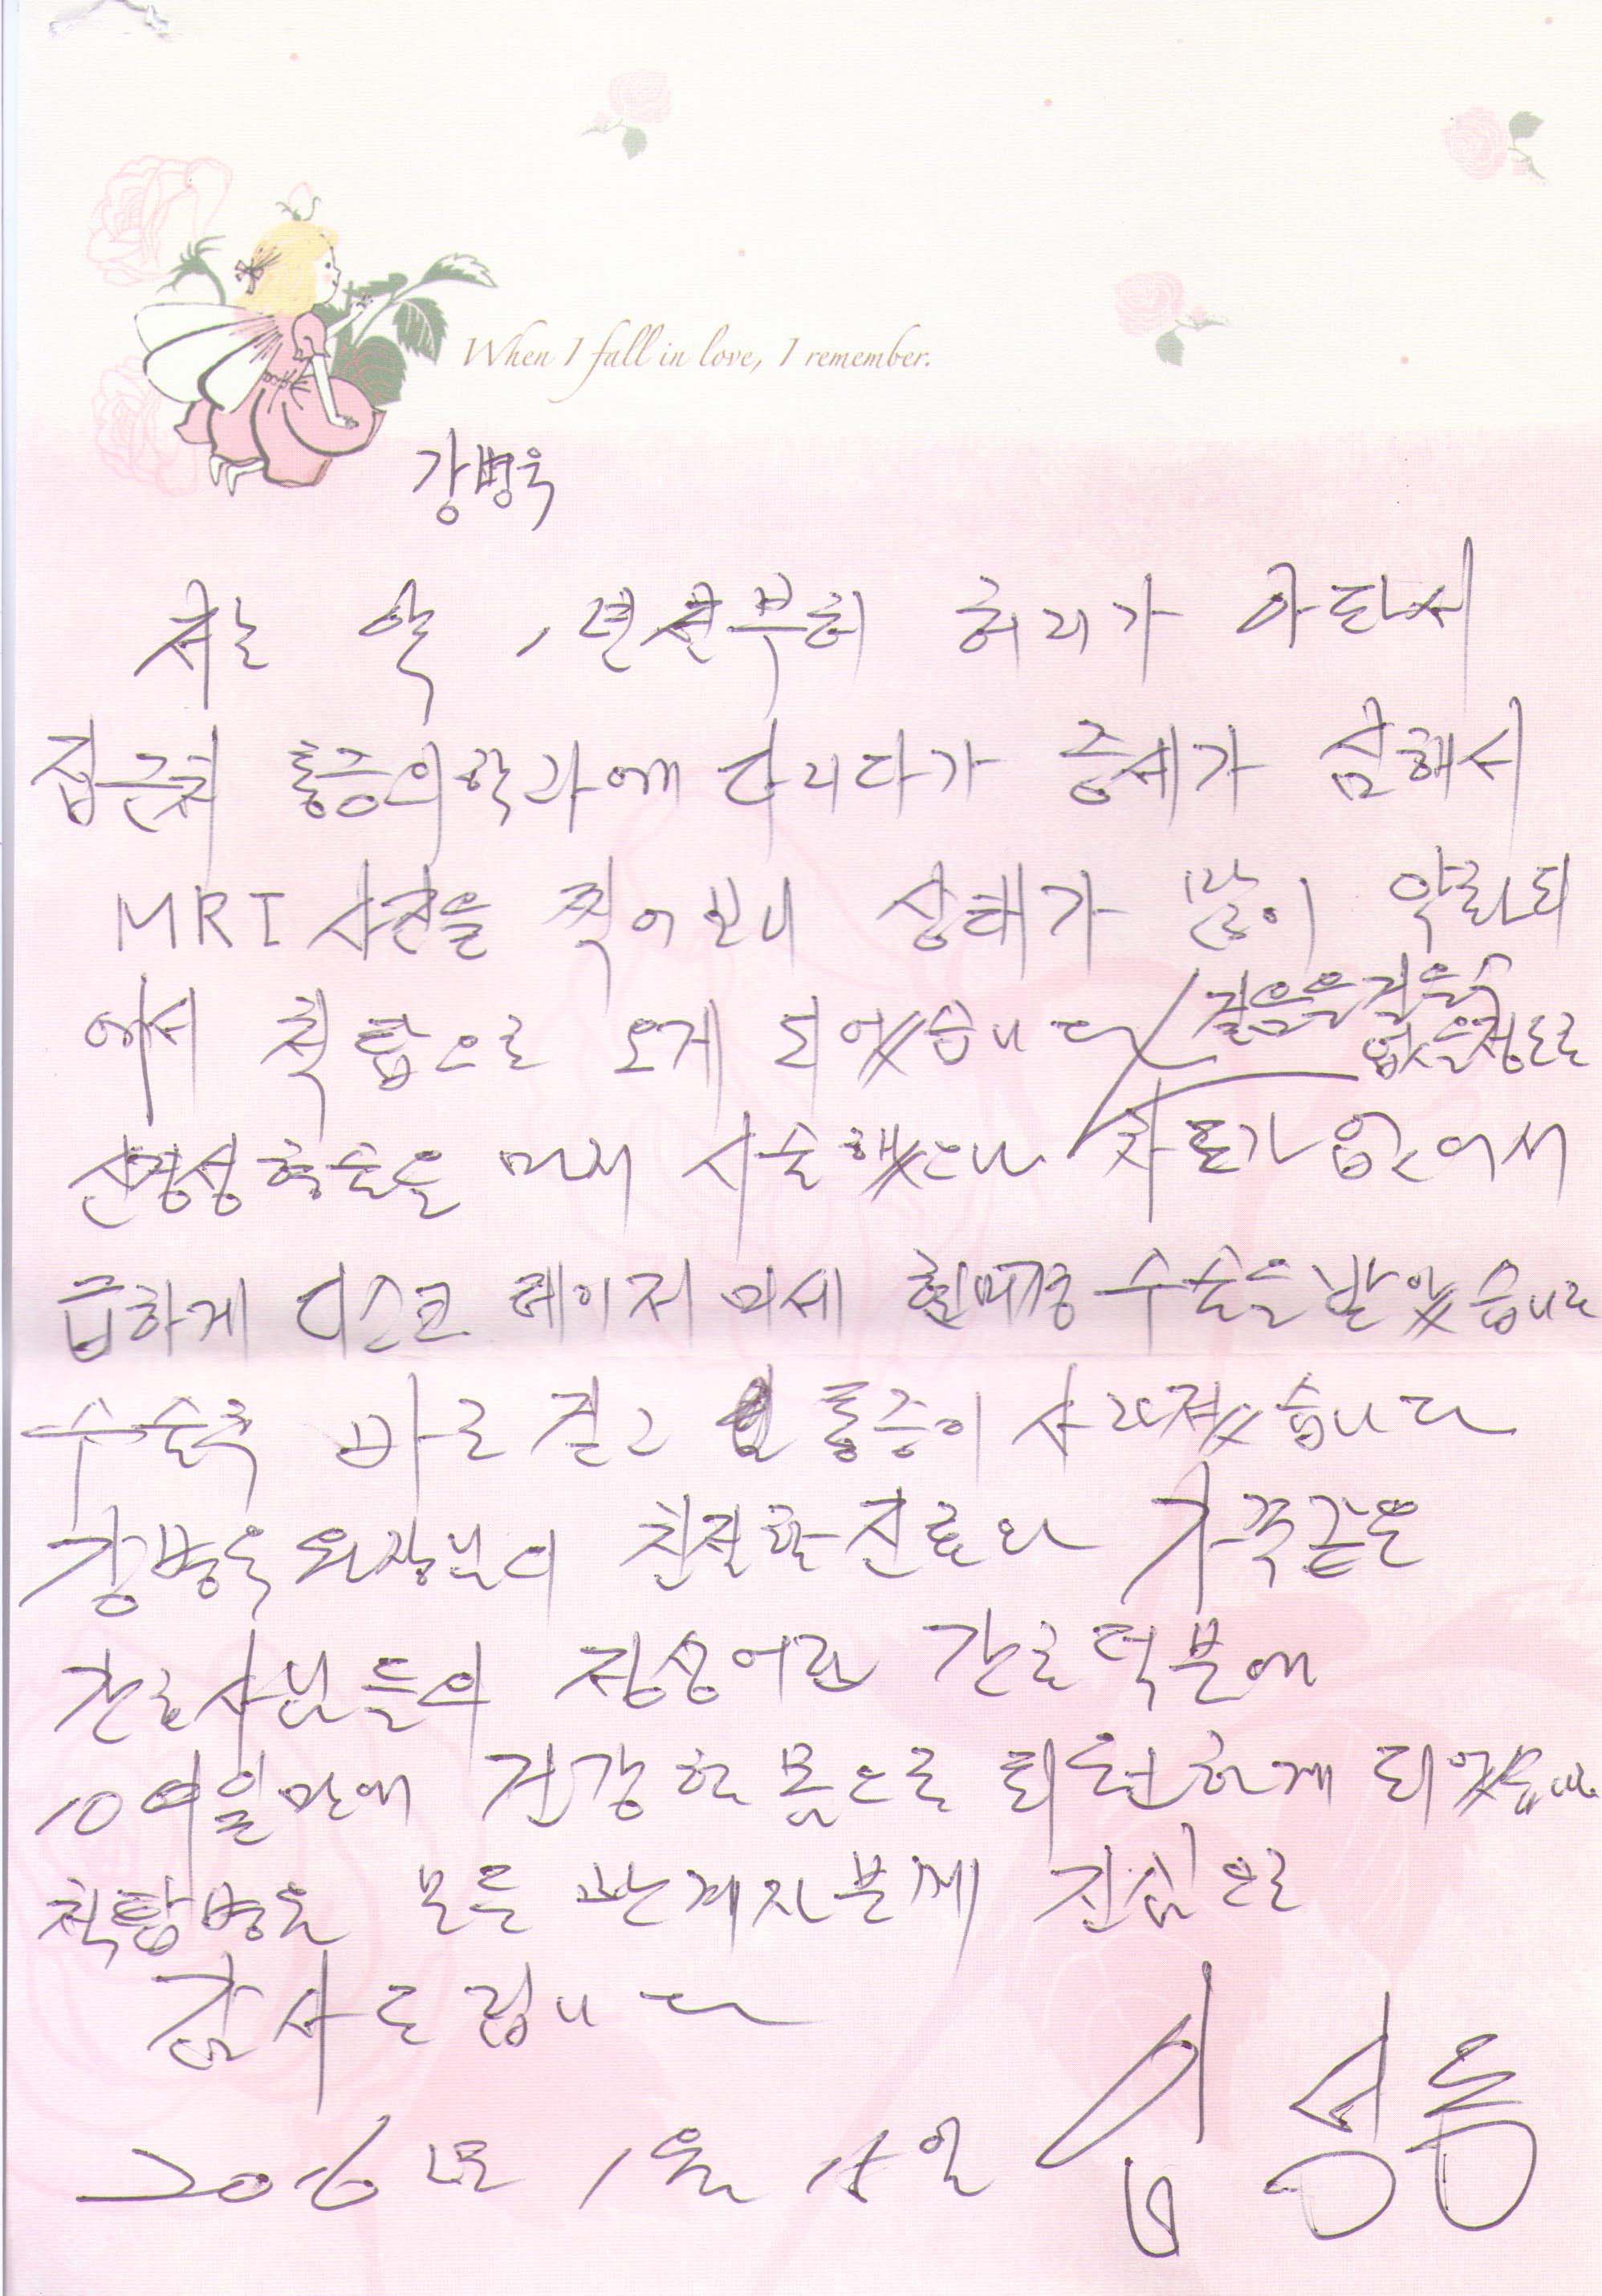 When I fall in love, I remember.
강병욱
저는 약 1년전부터 허리가 아파서
집근처 통증의학과에 다니다가 증세가 심해서
MRI 사진을 찍어보니 상태가 많이 악화되
어서 척탑으로 오게 되었습니다 걸음을 걸을수
없을정도로
신경성형술을 먼저 시술했으나 차도가 없어서
급하게 디스크 레이저 미세 현미경 수술을 받았습니다
수술후 바로 걷고 통증이 사라졌습니다
강병욱 원장님의 친절한 진료와 가족같은
간호사님들의 정성어린 간호덕분에
10여일만에 건강한 몸으로 퇴원하게 되었습니다
척탑병원 모든 관계자분께 진심으로
감사드립니다
2016년 1월 15일 심성